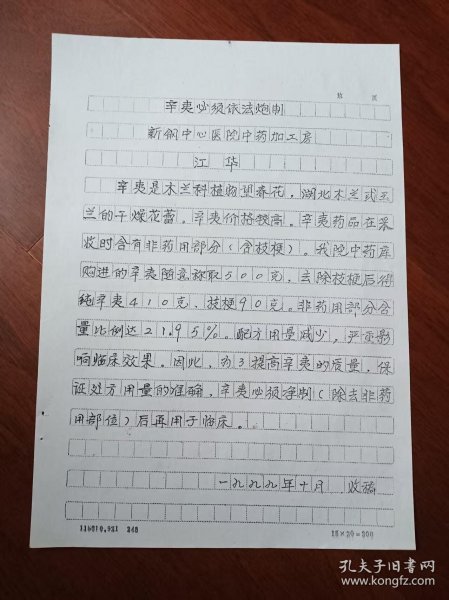 第 页
辛夷必须依法炮制
新钢中心医院中药加工房
江华
辛夷是木兰科植物望春花，湖北木兰或玉
兰的干燥花蕾。辛夷价格较高。辛夷药品在采
收时含有非药用部分（含枝梗）。我院中药库
购进的辛夷随意称取500克，去除枝梗后得
纯辛夷410克，枝梗90克。非药用部分含
量比例达21.95%。配方用量减少，严重影
响临床效果。因此，为了提高辛夷的质量，保
证处方用量的准确，辛夷必须净制（除去非药
用部位）后再用于临床。
一九九九年十月 收稿
15×20=300
孔夫子旧书网
www.kongfz.com